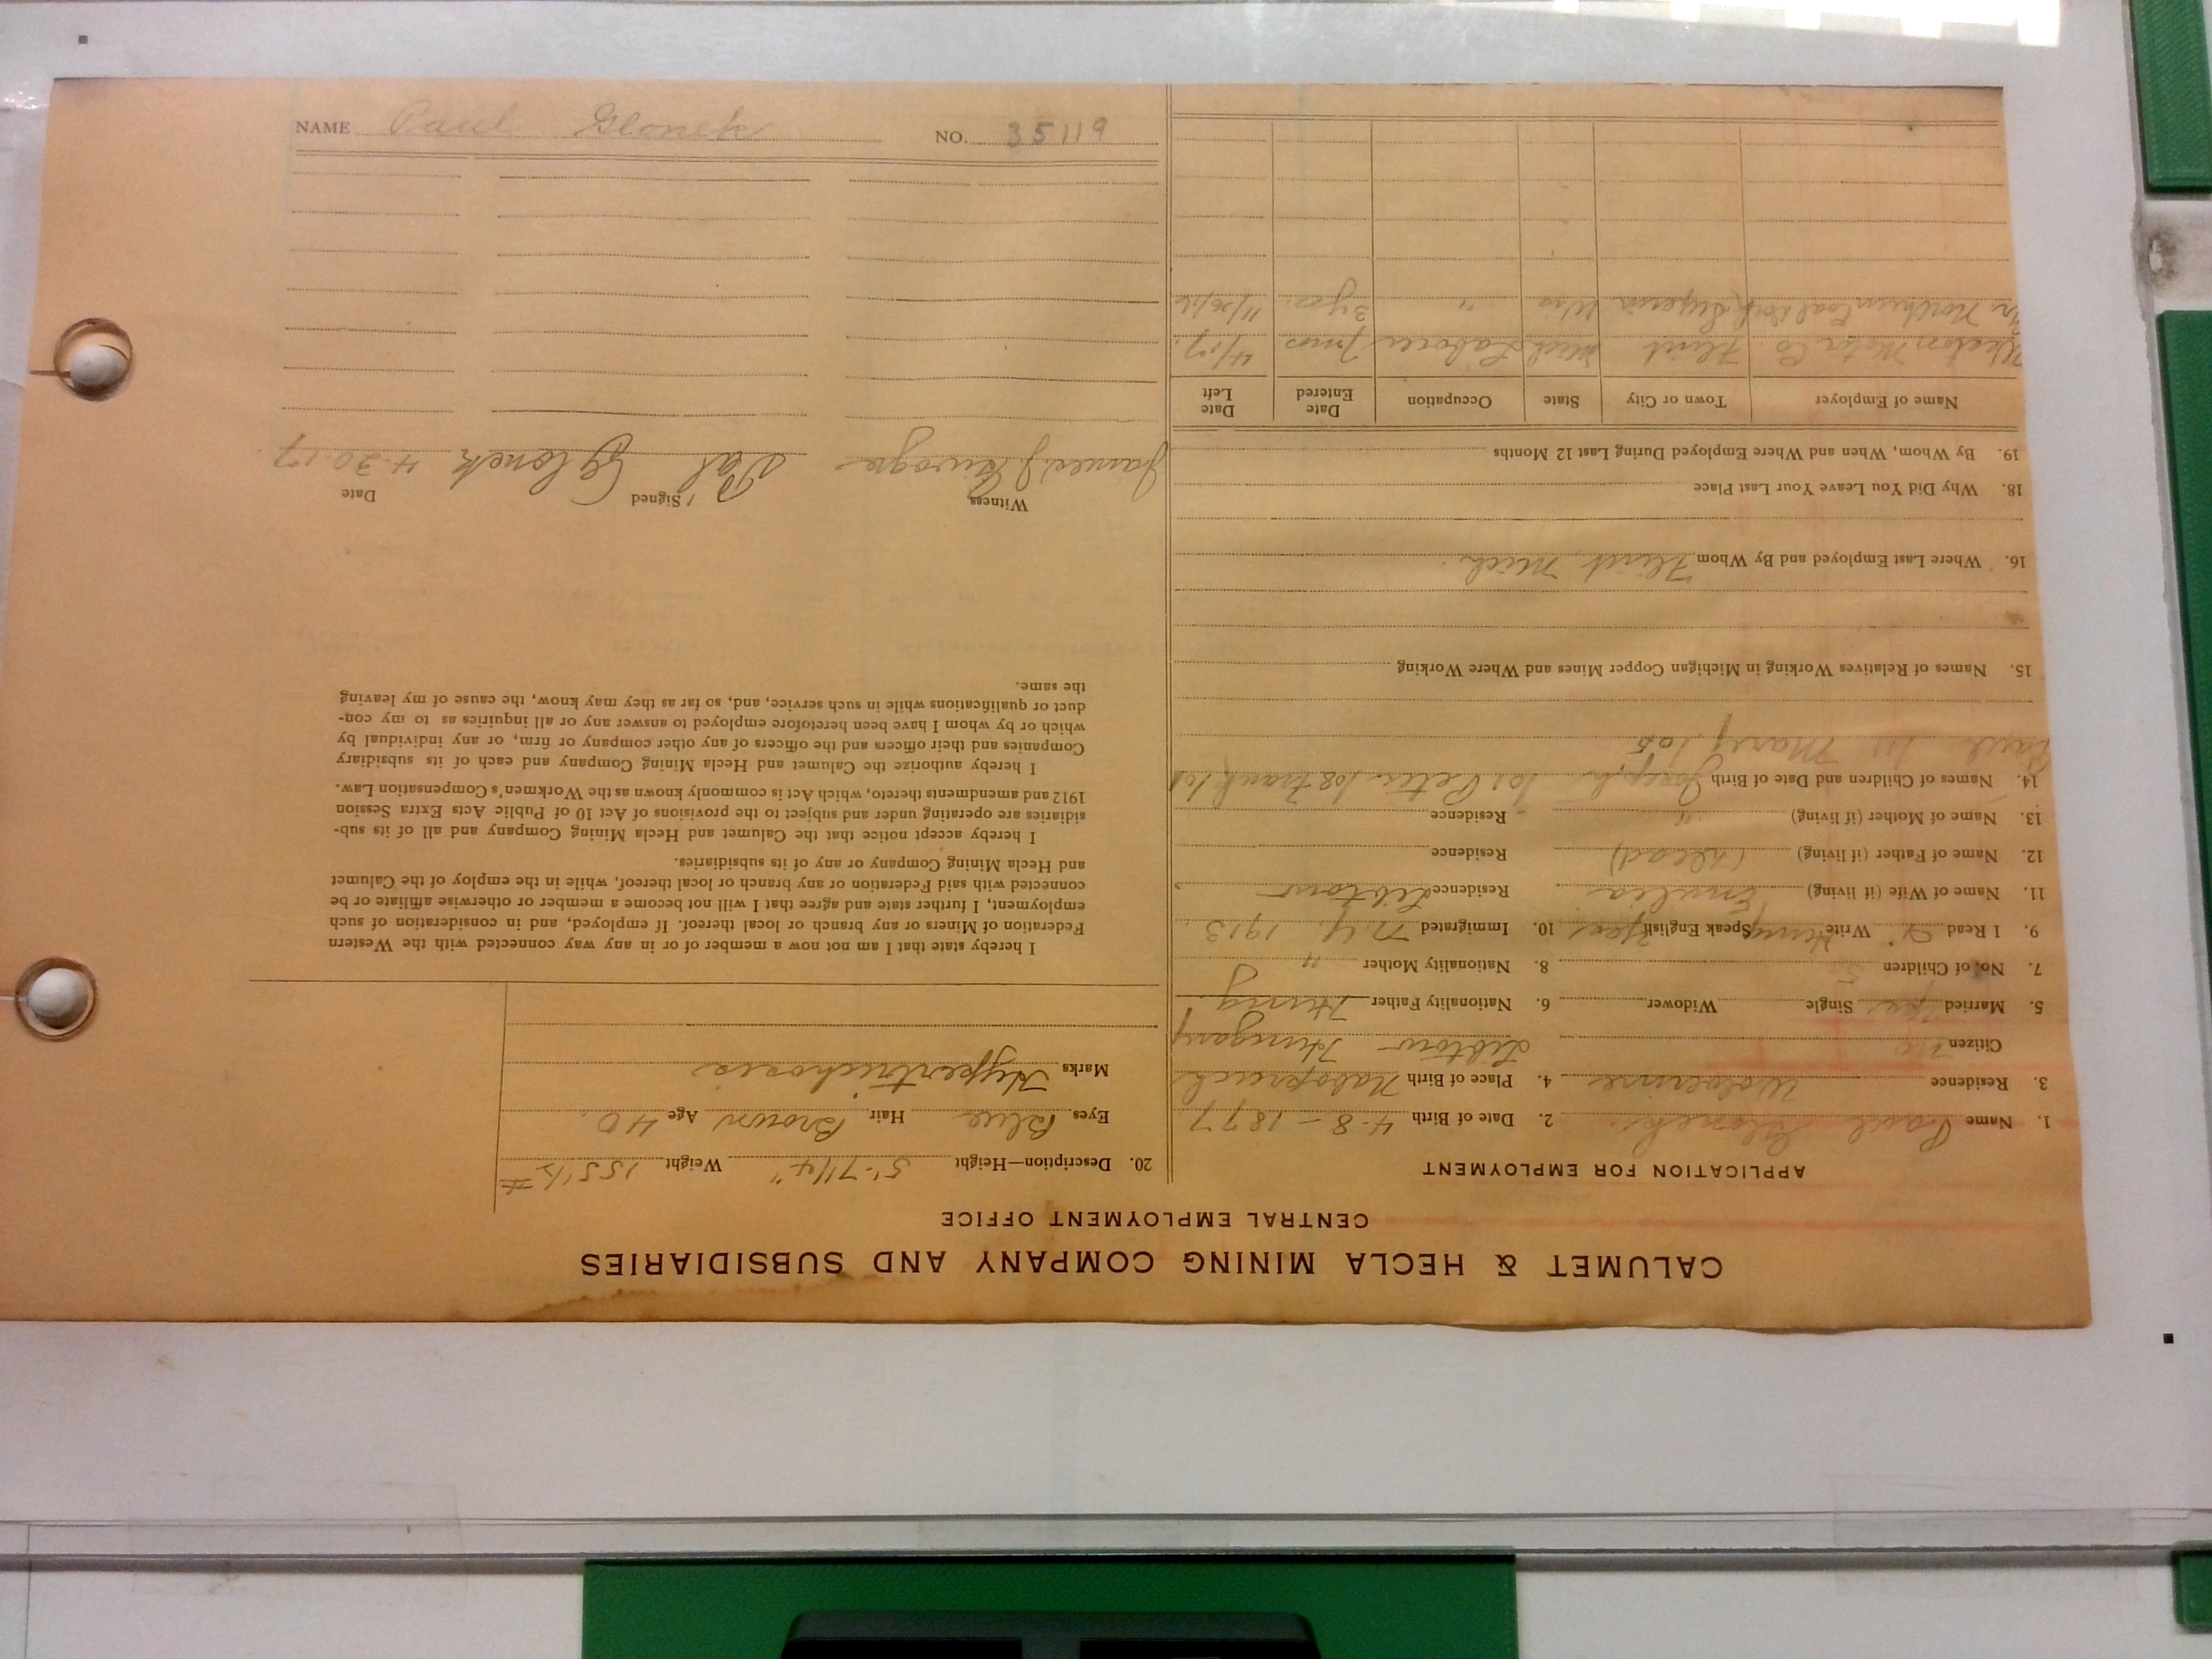 CALUMET & HECLA MINING COMPANY AND SUBSIDIARIES
CENTRAL EMPLOYMENT OFFICE
APPLICATION FOR EMPLOYMENT
1. Name Paul Glonek 2. Date of Birth 4-8-1877
3. Residence Wolverine 4. Place of Birth
Citizen No Hungary
5. Married Yes Single Widower 6. Nationality Father Hung.
7. No. of Children 5 8. Nationality Mother "
9. I Read & Write Hung Speak English Yes 10. Immigrated N.Y. 1913
11. Name of Wife (if living) Residence
12. Name of Father (if living) (Dead) Residence
13. Name of Mother (if living) " Residence
14. Names of Children and Date of Birth Joseph 101 Peter 108 Frank 101
Paul Mary 105
15. Names of Relatives Working in Michigan Copper Mines and Where Working
16. Where Last Employed and By Whom Flint, Mich.
18. Why Did You Leave Your Last Place
19. By Whom, When and Where Employed During Last 12 Months
Name of Employer Town or City State Occupation Date Entered Date Left
Motor Co Flint Mich Laborer 4/17.
Northern Coal Dock Superior Wis " 3 yrs. 11/26/16
20. Description—Height 5'-7 1/4" Weight 155 1/2 #
Eyes Blue Hair Brown Age 40.
Marks Hypertrichosis
I hereby state that I am not now a member of or in any way connected with the Western
Federation of Miners or any branch or local thereof. If employed, and in consideration of such
employment, I further state and agree that I will not become a member or otherwise affiliate or be
connected with said Federation or any branch or local thereof, while in the employ of the Calumet
and Hecla Mining Company or any of its subsidiaries.
I hereby accept notice that the Calumet and Hecla Mining Company and all of its sub-
sidiaries are operating under and subject to the provisions of Act 10 of Public Acts Extra Session
1912 and amendments thereto, which Act is commonly known as the Workmen's Compensation Law.
I hereby authorize the Calumet and Hecla Mining Company and each of its subsidiary
Companies and their officers and the officers of any other company or firm, or any individual by
which or by whom I have been heretofore employed to answer any or all inquiries as to my con-
duct or qualifications while in such service, and, so far as they may know, the cause of my leaving
the same.
Witness Signed Date
James J. Pal Glonek 4-30-17
NAME Paul Glonek NO. 35119